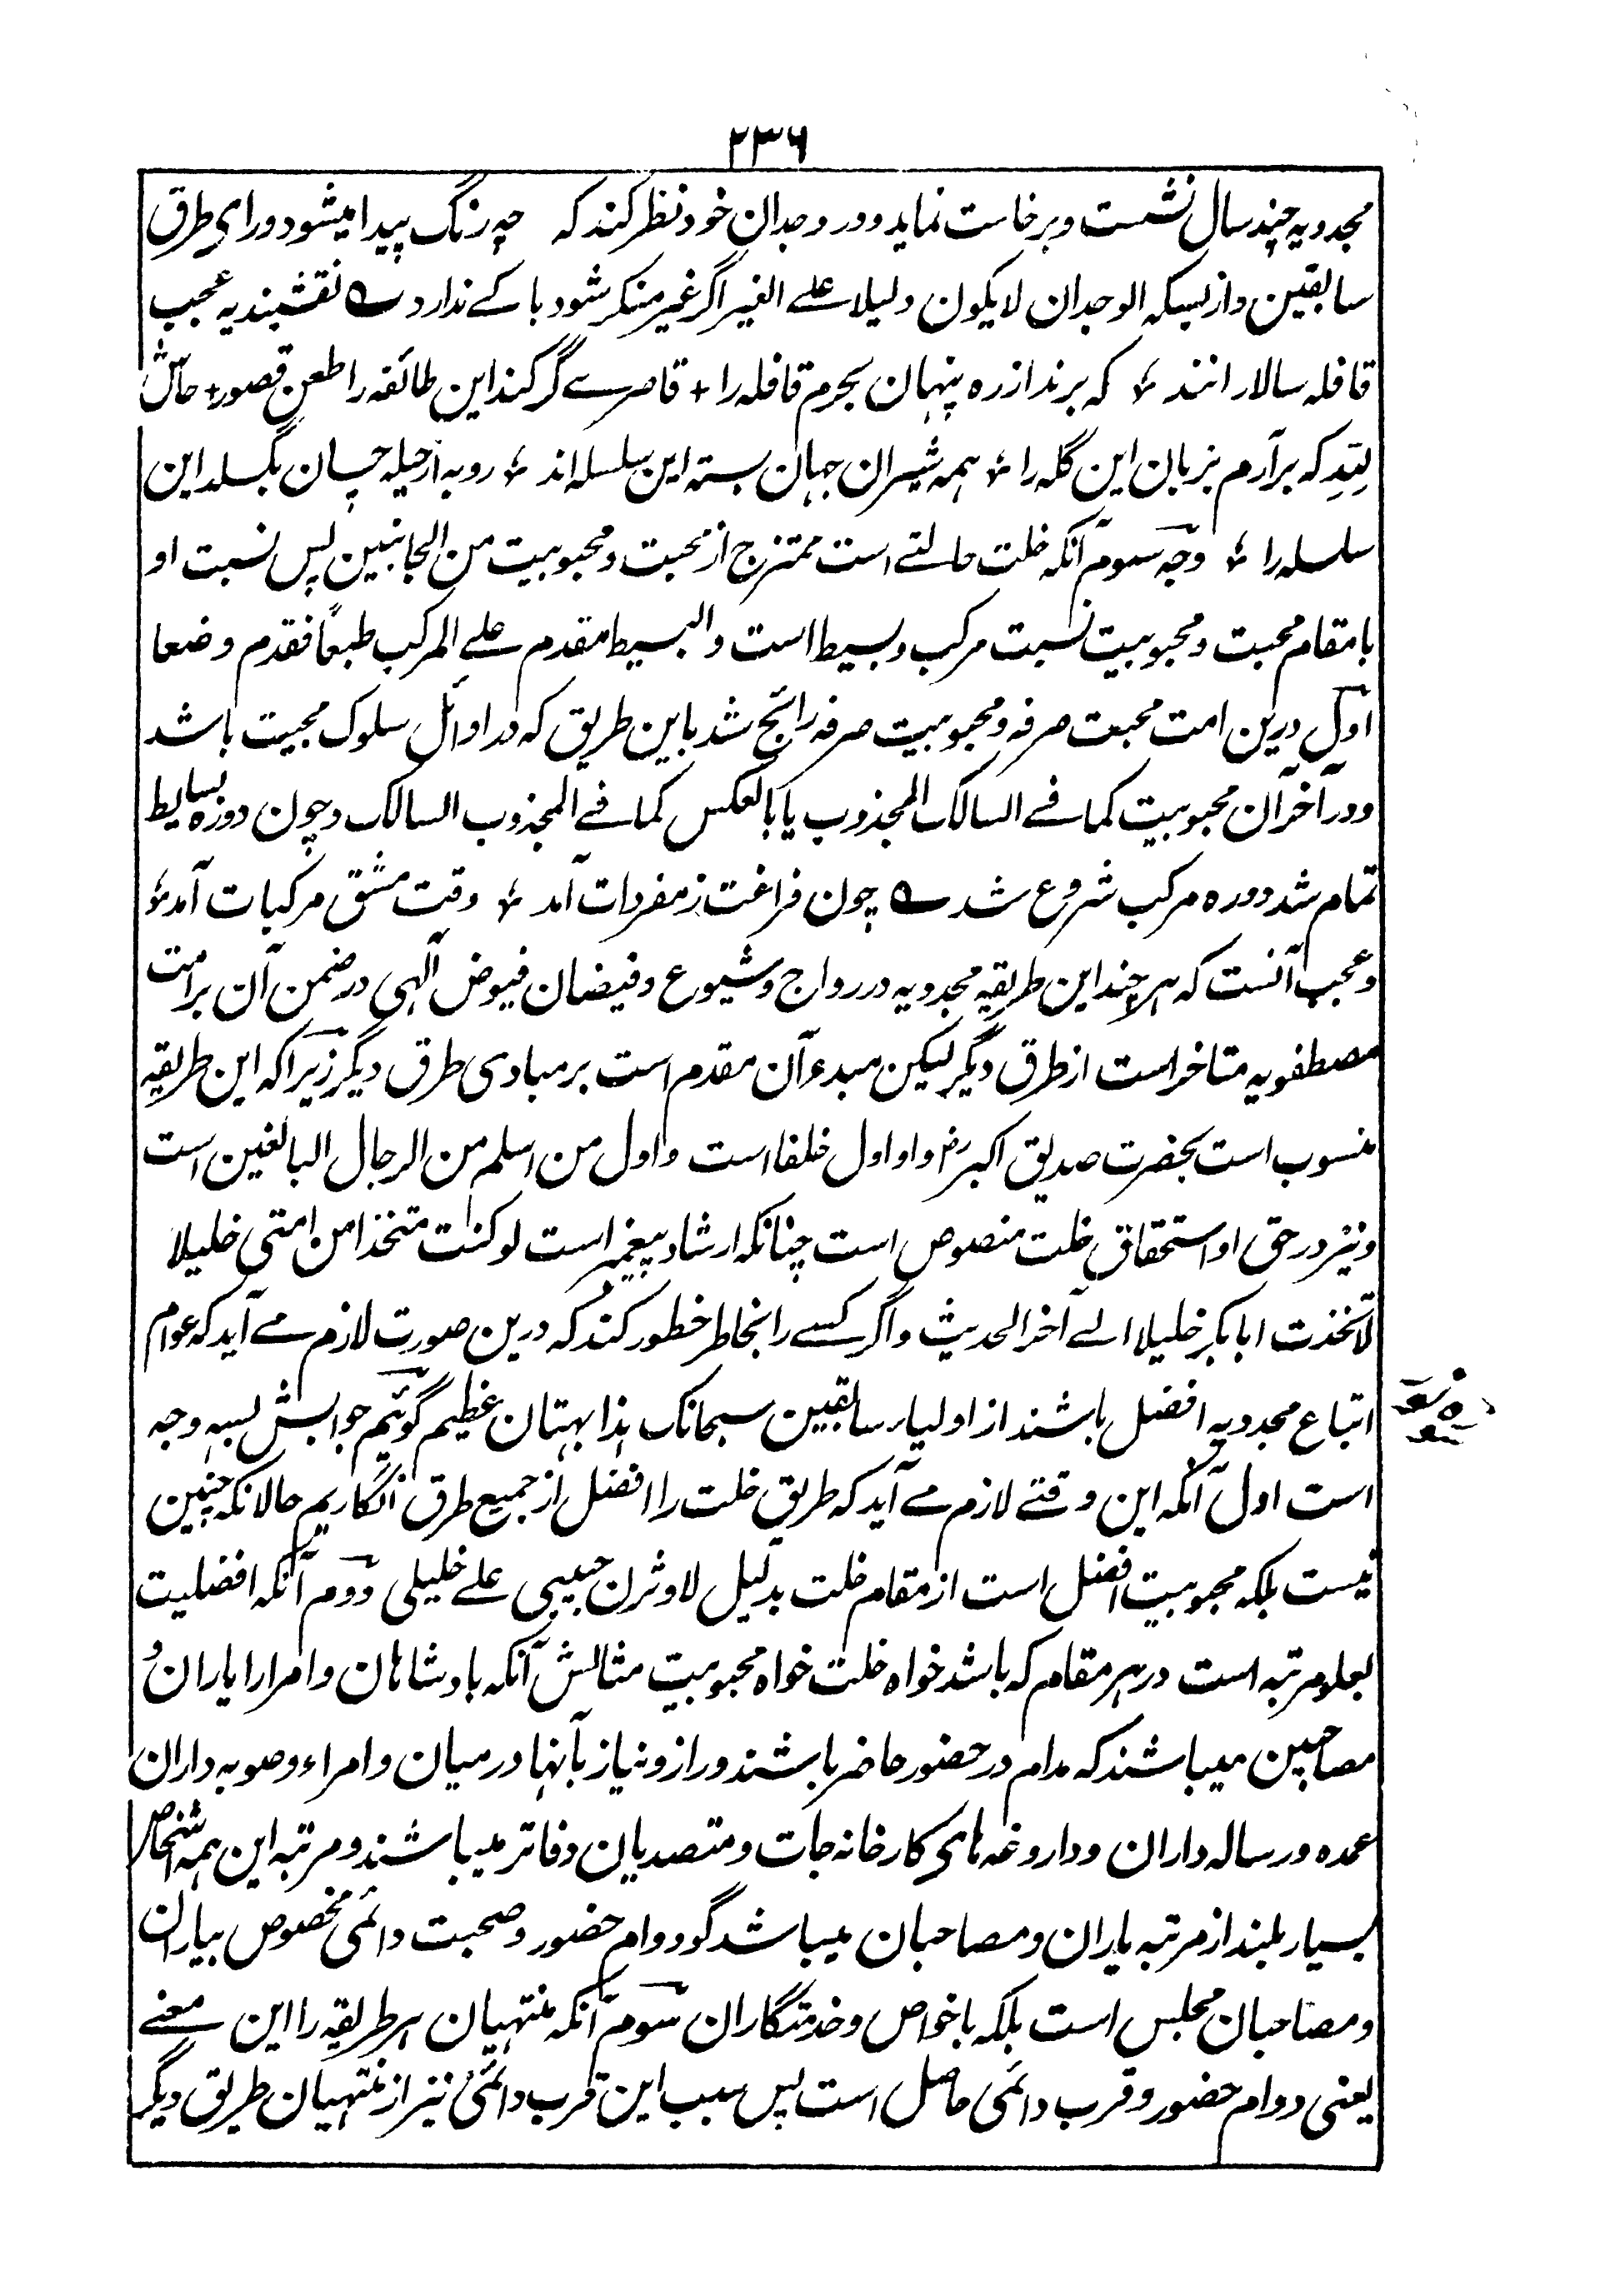 ۲۳۶
مجددیہ چند سال نشست و برخاست نماید و در وجدان خود نظر کند کہ چہ رنگ پیدا میشود ورای طرق
سابقین و از بسکہ الوجدان لا یکون دلیلا علے الغیر اگر غیر منکر شود باکے ندارد ؎ نقشبندیہ عجب
قافلہ سالارانند ٪ کہ برند از رہ پنہان بحرم قافلہ را + قاصرے گر کند این طائفہ را طعن قصور + حاش
للہ کہ برآرم بزبان این گلہ را ٪ ہمہ شیران جہان بستہ این سلسلہ اند ٪ روبہ از حیلہ چسان بگسلد این
سلسلہ را ٪ وجہ سوم آنکہ خلت حالتے است ممتزج از محبت و محبوبیت من الجانبین پس نسبت او
بامقام محبت و محبوبیت نسبت مرکب و بسیط است والبسیط مقدم علے المرکب طبعاً فقدم وضعا
اول درین امت محبت صرفہ و محبوبیت صرفہ رائج شد باین طریق کہ در اوائل سلوک محبیت باشد
و در آخر آن محبوبیت کما فے السالک المجذوب یا بالعکس کما فے المجذوب السالک و چون دورہ بسایط
تمام شد دورہ مرکب شروع شد ؎ چون فراغت ز مفردات آمد ٪ وقت مشق مرکبات آمد ٪
و عجب آنست کہ ہر چند این طریقہ مجددیہ در رواج و شیوع و فیضان فیوض آلہی در ضمن آن بر امت
مصطفویہ متاخر است از طرق دیگر لیکن مبدء آن مقدم است بر مبادی طرق دیگر زیرا کہ این طریقہ
منسوب است بحضرت صدیق اکبر رض و او اول خلفا است و اول من اسلم من الرجال البالغین است
و نیز در حق او استحقاق خلت منصوص است چنانکہ ارشاد پیغمبر است لو کنت متخذا من امتی خلیلا
لاتخذت ابابکر خلیلا الے آخر الحدیث و اگر کسے را بخاطر خطور کند کہ درین صورت لازم مے آید کہ عوام
اتباع مجددیہ افضل باشند از اولیاء سابقین سبحانک ہذا بہتان عظیم گوئیم جوابش بسہ وجہ
است اول آنکہ این وقتے لازم مے آید کہ طریق خلت را افضل از جمیع طرق انگاریم حالانکہ چنین
نیست بلکہ محبوبیت افضل است از مقام خلت بدلیل لاوثرن حبیبی علے خلیلی دوم آنکہ افضلیت
بعلو مرتبہ است در ہر مقام کہ باشد خواہ خلت خواہ محبوبیت مثالش آنکہ بادشاہان و امرا را یاران و
مصاحبین میباشند کہ مدام در حضور حاضر باشند و راز و نیاز بآنہا در میان و امراء و صوبہ داران
عمدہ و رسالہ داران و داروغہ ہای کارخانہ جات و متصدیان دفاتر میباشند و مرتبہ این ہمہ اشخاص
بسیار بلند از مرتبہ یاران و مصاحبان میباشد گو دوام حضور و صحبت دائمی مخصوص بیاران
و مصاحبان مجلس است بلکہ باخواص و خدمتگاران سوم آنکہ منتہیان ہر طریقہ را این معنے
یعنی دوام حضور و قرب دائمی حاصل است پس سبب این قرب دائمی نیز از منتہیان طریق دیگر